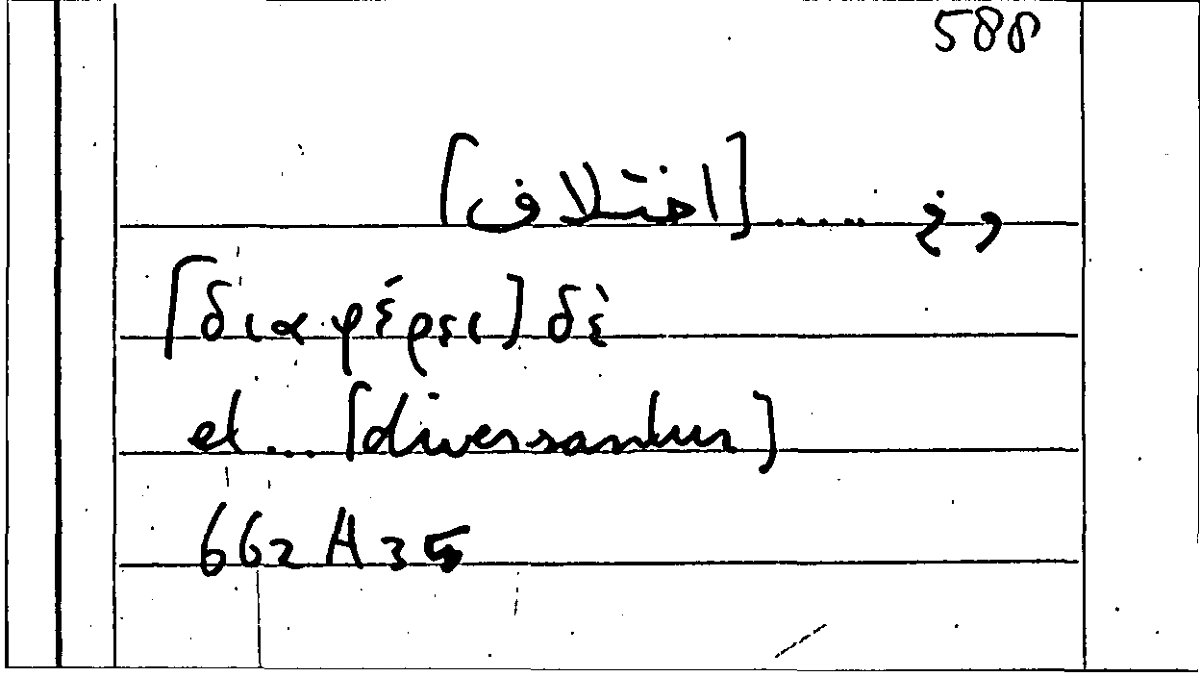 588
وفي ..... [اختلاف]
[διαφέρει] δὲ
et ... [diversantur]
662 A 35